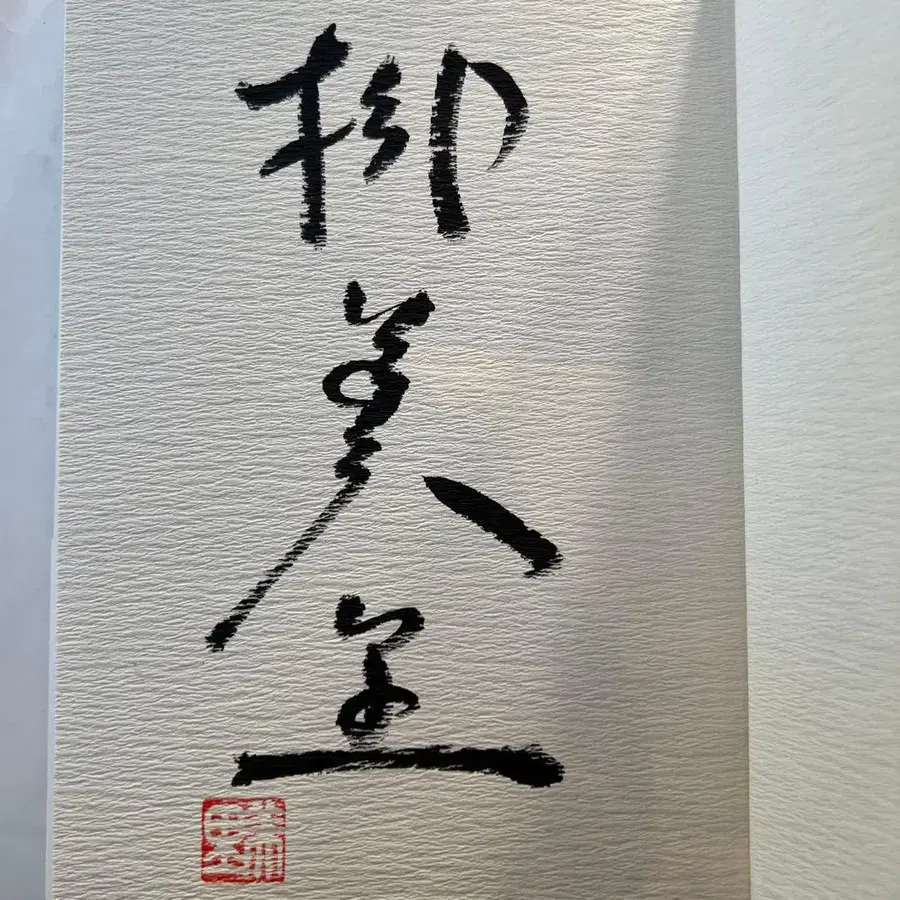 柳
美
里